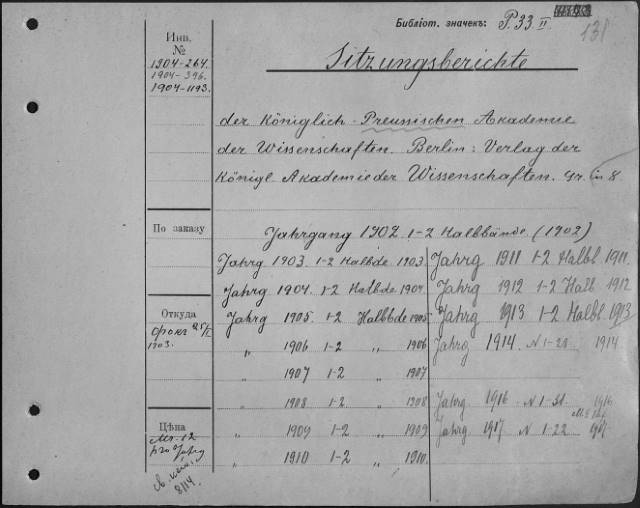 Библіот. значекъ: P. 33 II
131
Инв.
№
1904-264.
1904-396.
1904-1193.
Sitzungsberichte
der Königlich-Preussischen Akademie
der Wissenschaften. Berlin: Verlag der
Königl. Akademie der Wissenschaften. Gr. in 8
По заказу
Jahrgang 1902 1-2 Halbbände (1902)
Jahrg 1903. 1-2 Halbde 1903.
Jahrg 1904. 1-2 Halbde 1904.
Jahrg 1905. 1-2 Halbbde 1905
„ 1906 1-2 „ 1906
„ 1907 1-2 „ 1907
„ 1908 1-2 „ 1908
„ 1909 1-2 „ 1909
„ 1910 1-2 „ 1910.
Jahrg 1911 1-2 Halbl 1911.
Jahrg 1912 1-2 Halb 1912
Jahrg 1913 1-2 Halbl 1913
Jahrg 1914. N 1-23 1914
Jahrg 1916 N 1-51. 1916
Jahrg 1917 N 1-22 1917
Откуда
1903.
Цѣна
Mr. 12
pro Jahrg
8/14.